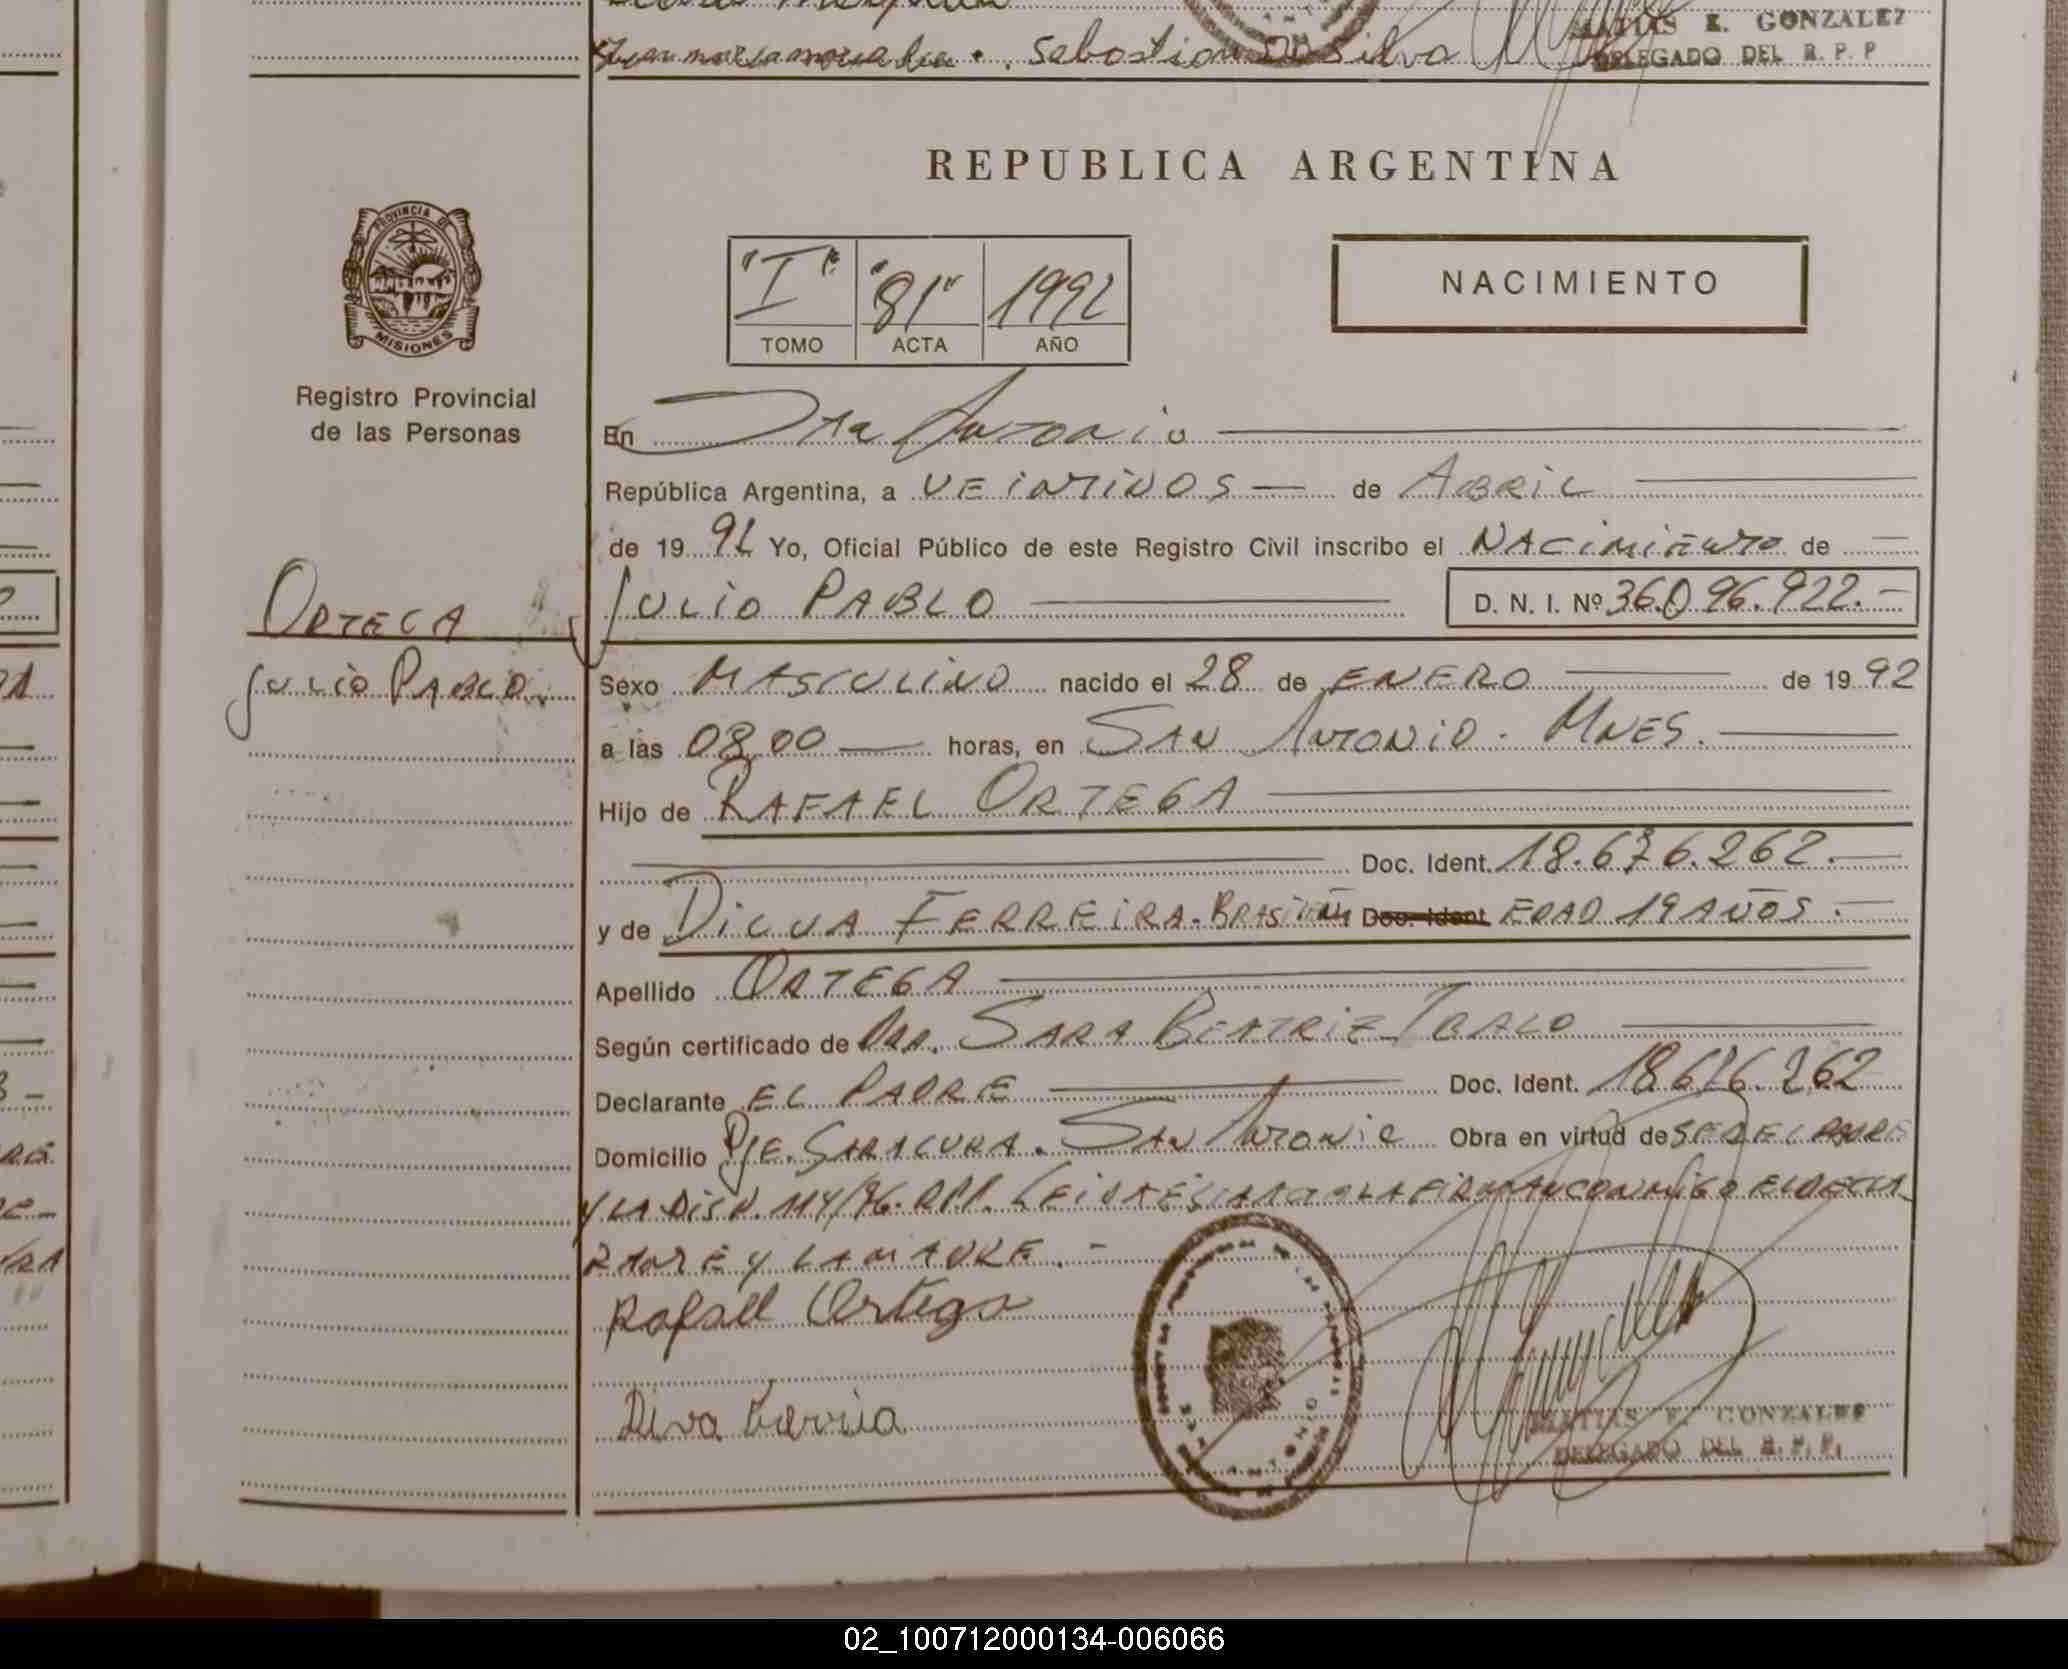 Sebastian Da Silva
MATIAS E. GONZALEZ
DELEGADO DEL R. P. P
REPUBLICA ARGENTINA
PROVINCIA DE
MISIONES
Registro Provincial
de las Personas
"I" "81" 1992
TOMO ACTA AÑO
NACIMIENTO
En San Antonio
República Argentina, a VEINTIDOS de ABRIL
de 19 92 Yo, Oficial Público de este Registro Civil inscribo el NACIMIENTO de
ORTEGA
JULIO PABLO
JULIO PABLO D. N. I. Nº 36.096.922.-
Sexo MASCULINO nacido el 28 de ENERO de 19 92
a las 08,00 horas, en SAN ANTONIO. MNES.
Hijo de RAFAEL ORTEGA
Doc. Ident. 18.676.262.
y de DILVA FERREIRA. Doc. Ident EDAD 19 AÑOS.
Apellido ORTEGA
Según certificado de DRA. SARA BEATRIZ
Declarante EL PADRE Doc. Ident. 18.676.262
Domicilio PJE. SARACURA. SAN ANTONIO Obra en virtud de SER EL PADRE
Y LA DISP. 114/76. RPP. LEIDA ESTA ACTA LA FIRMAN CONMIGO EL DECLA
RANTE Y LA MADRE.-
Rafael Ortega
MATIAS E. GONZALEZ
DELEGADO DEL R. P. P.
02_100712000134-006066